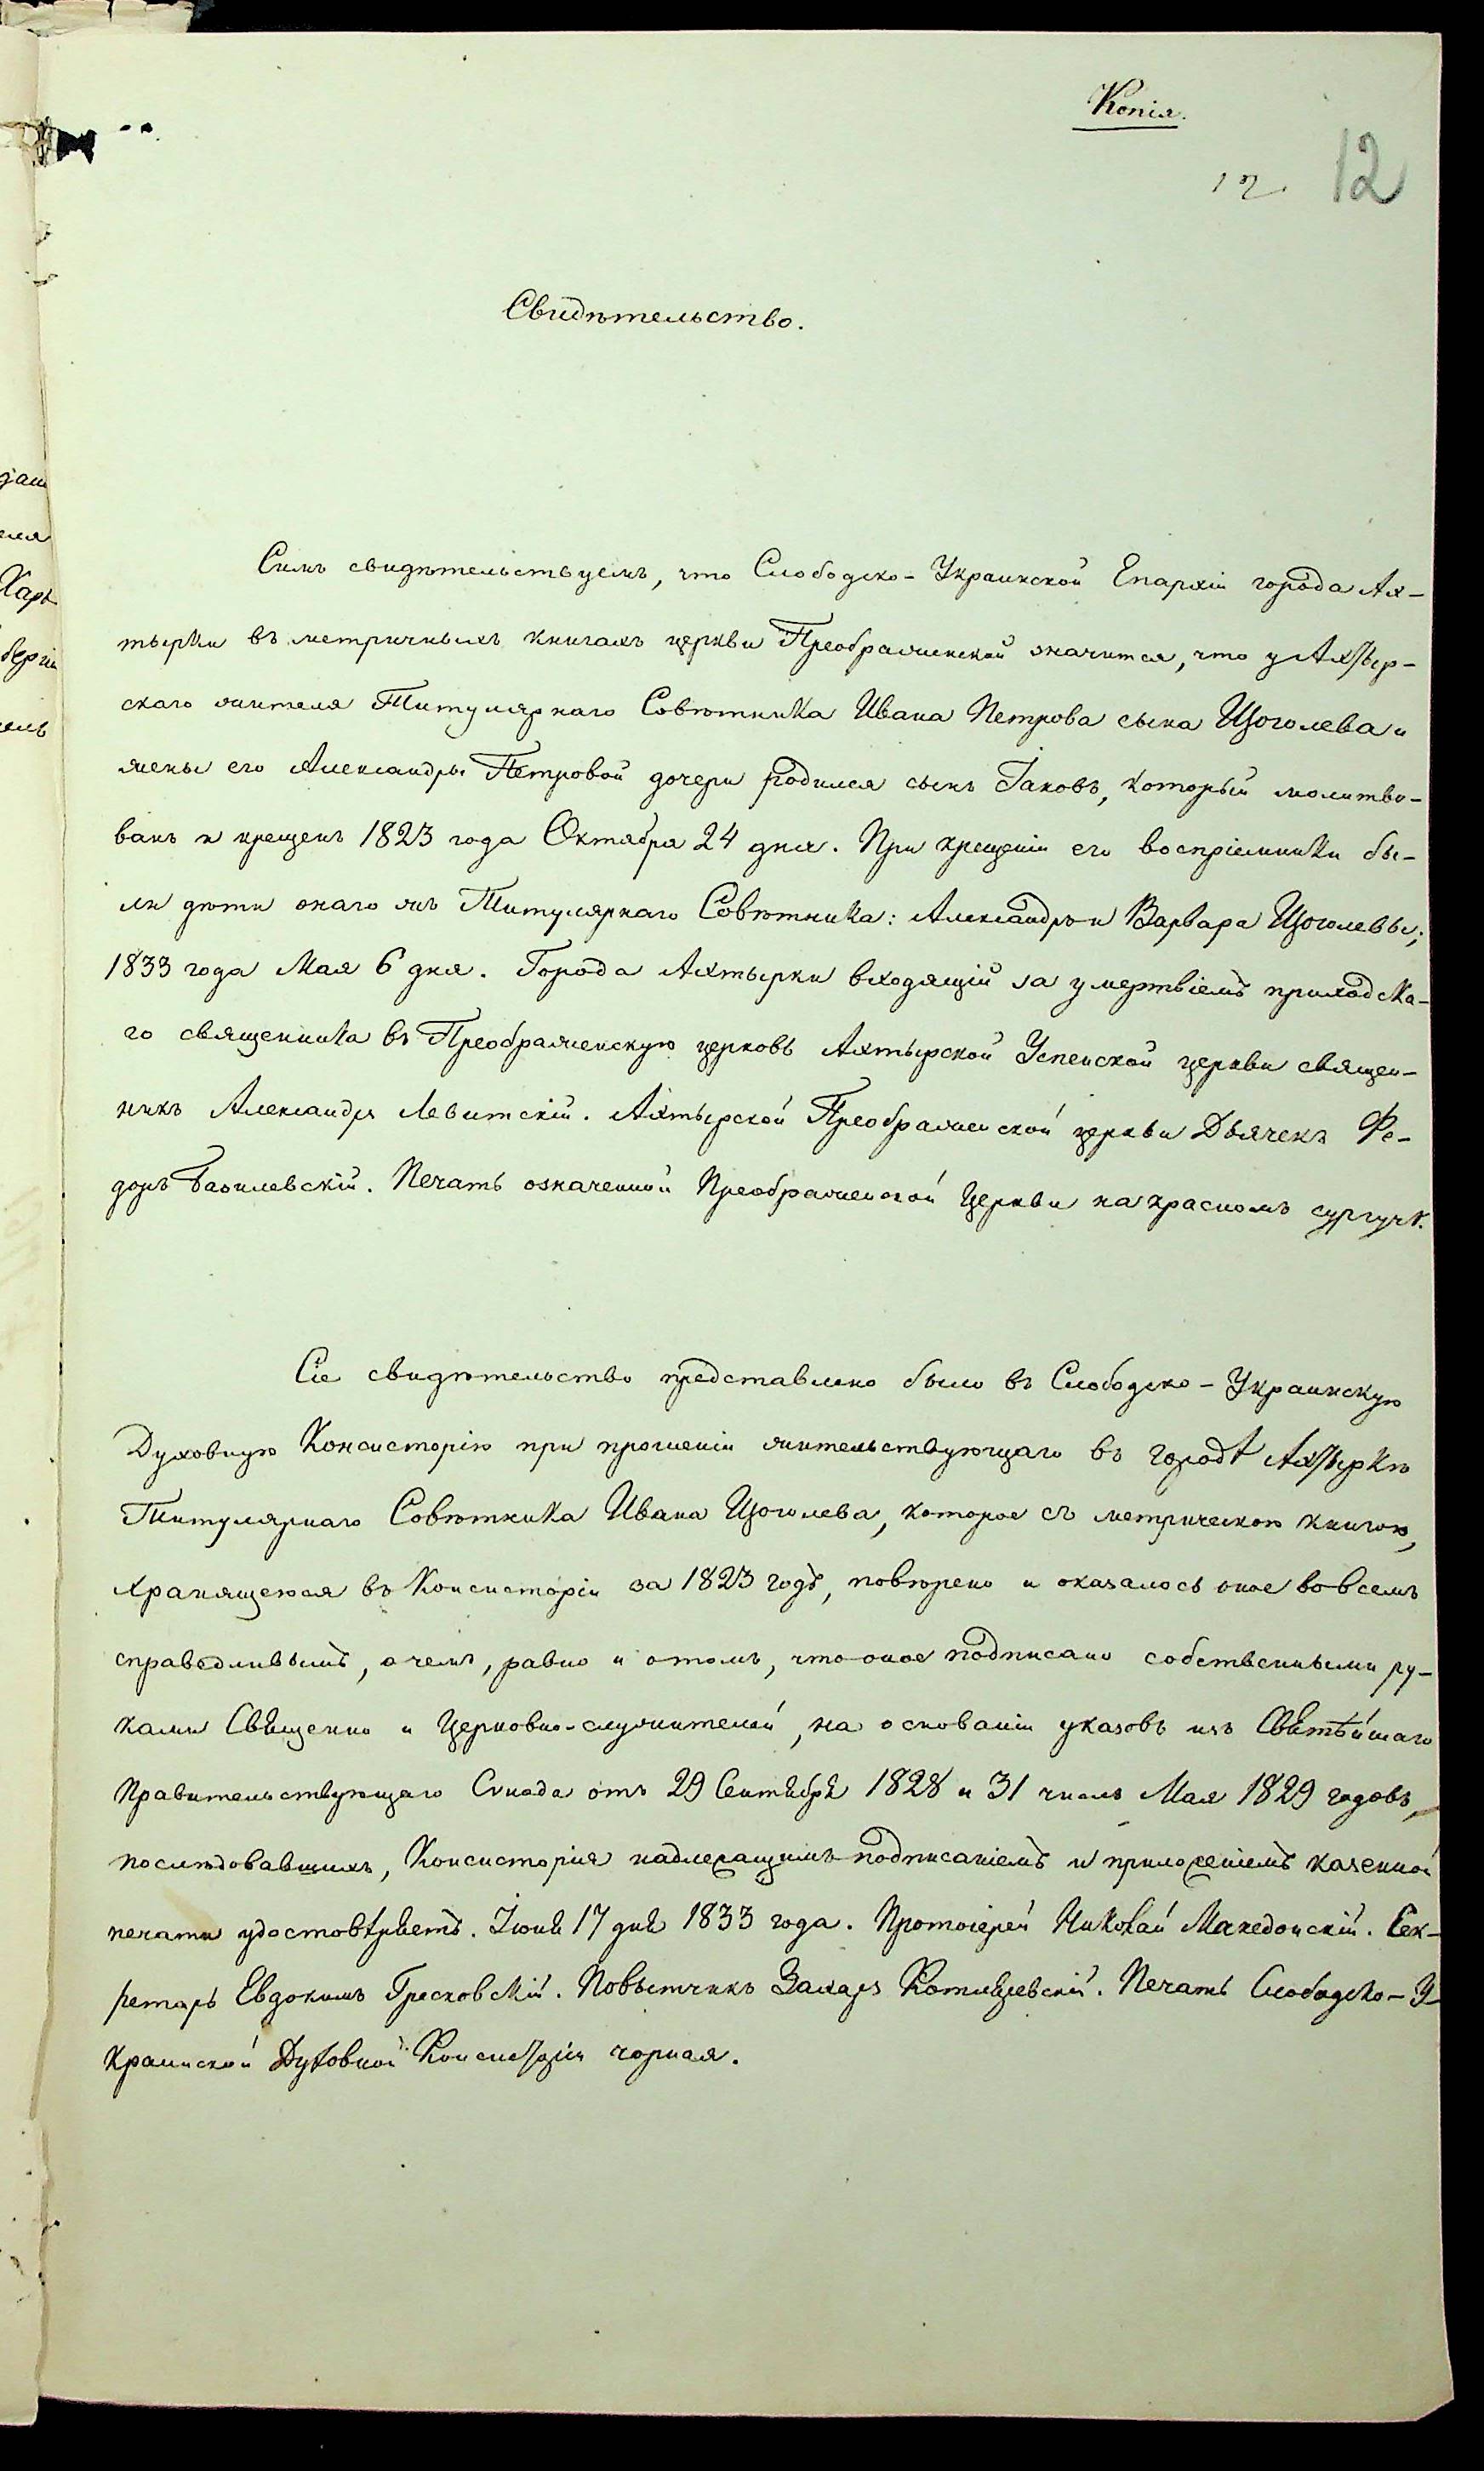 Копія.
12. 12
Свидѣтельство.
Симъ свидѣтельствуемъ, что Слободско-Украинской Епархіи города Ах-
тырки въ метричныхъ книгахъ церкви Преображенской значится, что у Ахтыр-
скаго жителя Титулярнаго Совѣтника Ивана Петрова сына Щоголева и
жены его Александры Петровой дочери родился сынъ Іаковъ, который молитво-
ванъ и крещенъ 1823 года Октября 24 дня. При крещеніи его воспріемники бы-
ли дѣти онаго жъ Титулярнаго Совѣтника: Александръ и Варвара Щоголевы;
1833 года Мая 6 дня. Города Ахтырки входящій за умертвіемъ приходска-
го священника въ Преображенскую церковь Ахтырской Успенской церкви священ-
никъ Александръ Левитскій. Ахтырской Преображенской церкви Дьячекъ Фе-
доръ Базилевскій. Печать означенной Преображенской Церкви на красномъ сургучѣ.
Сіе свидѣтельство представлено было въ Слободско-Украинскую
Духовную Консисторію при прошеніи жительствующаго въ городѣ Ахтыркѣ
Титулярнаго Совѣтника Ивана Щоголева, которое съ метрическою книгою,
хранящеюся въ Консисторіи за 1823 годъ, повѣрено и оказалось оное во всемъ
справедливымъ, о чемъ, равно и о томъ, что оное подписано собственными ру-
ками Священно и Церковно-служителей, на основаніи указовъ изъ Святѣйшаго
Правительствующаго Сѵнода отъ 29 Сентября 1828 и 31 числъ Мая 1829 годовъ,
послѣдовавшихъ, Консисторія надлежащимъ подписаніемъ и приложеніемъ казенной
печати удостовѣряетъ. Іюня 17 дня 1833 года. Протоіерей Николай Македонскій. Сек-
ретарь Евдокимъ Гресковскій. Повытчикъ Захаръ Котляревскій. Печать Слободско-У-
краинской Духовной Консисторіи чорная.